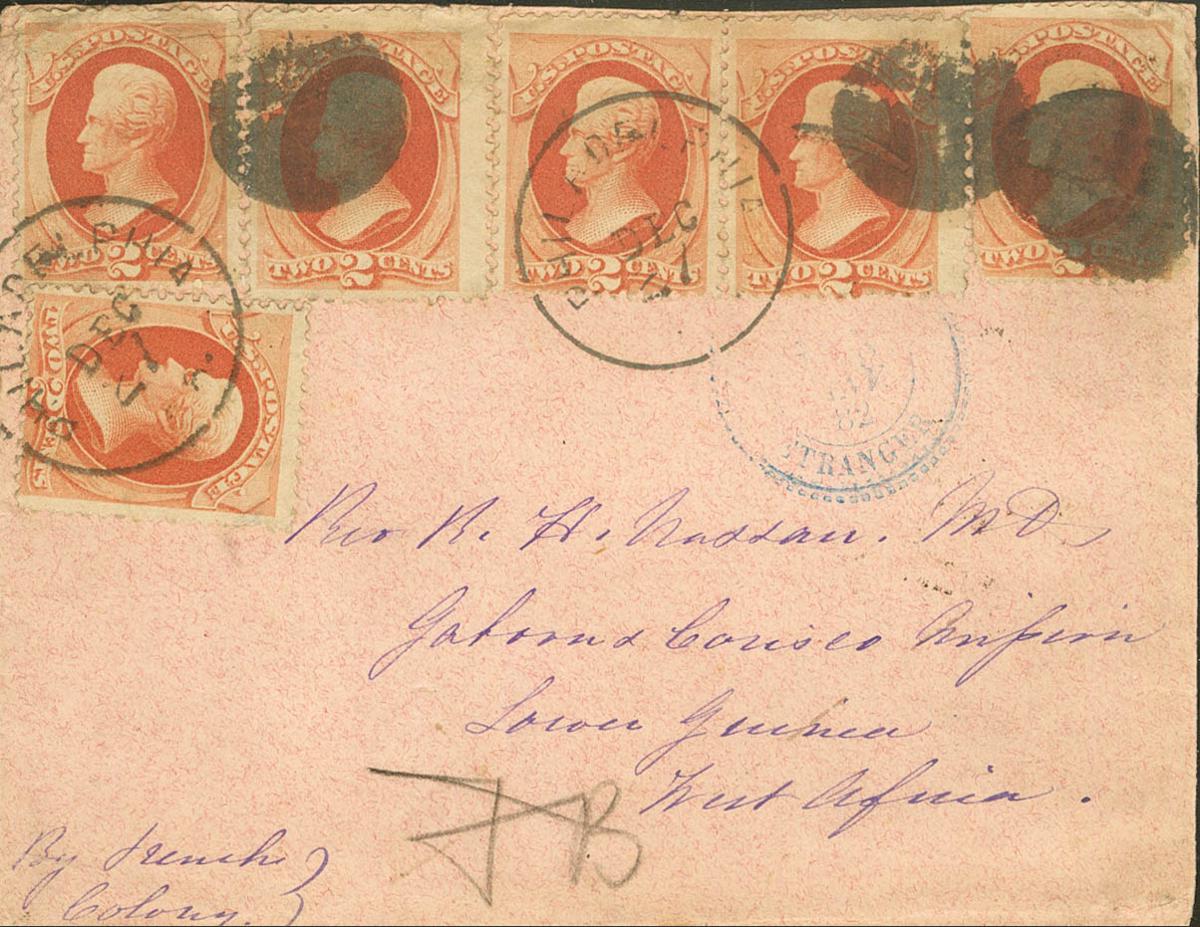 U.S. POSTAGE U.S. POSTAGE U.S. POSTAGE U.S. POSTAGE POSTAGE
TWO 2 CENTS TWO 2 CENTS TWO 2 CENTS TWO 2 CENTS TWO
PHILADELPHIA
DEC
7
PHILADELPHIA
DEC
7
PA.
U.S. POSTAGE
TWO 2
82
ETRANGER
Rev R. H. Nassau. M D
Gaboon & Corisco Mission
Lower Guinea
West Africa.
B
By French
Colony.